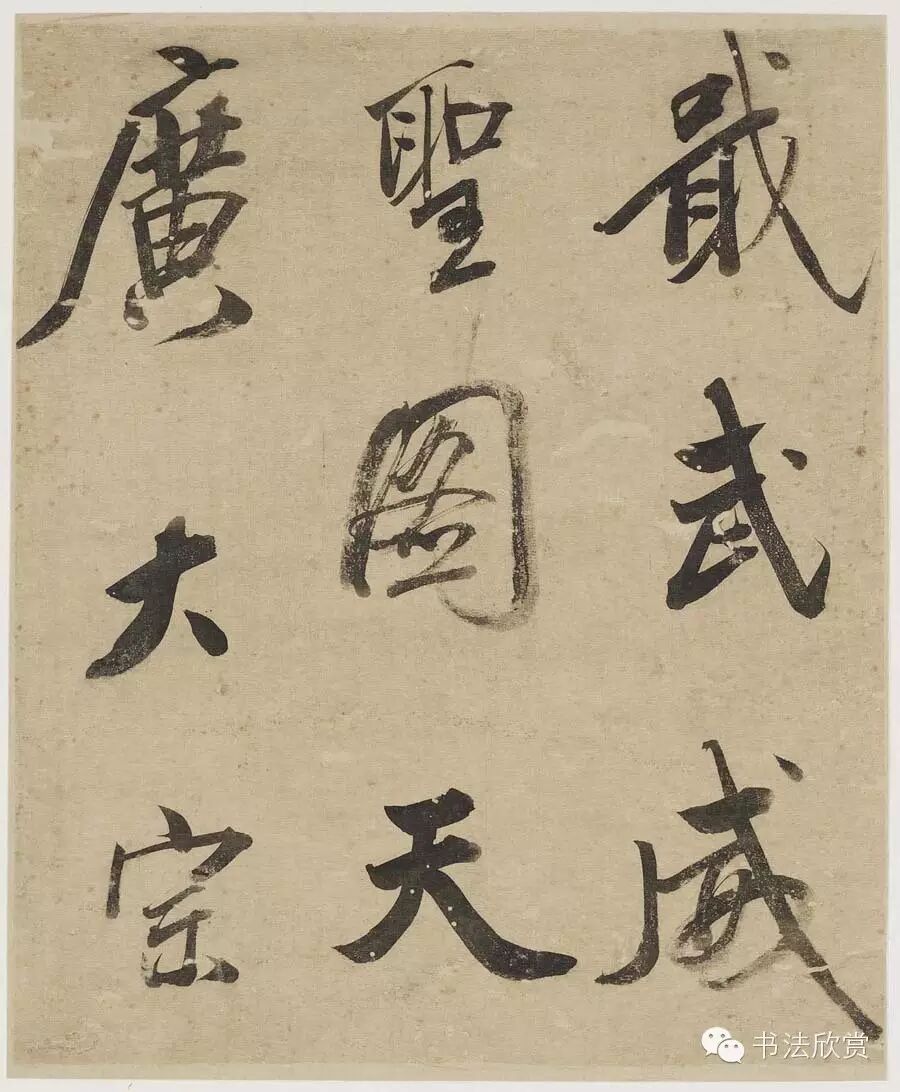 戢武威
聖圖天
廣大宗
书法欣赏